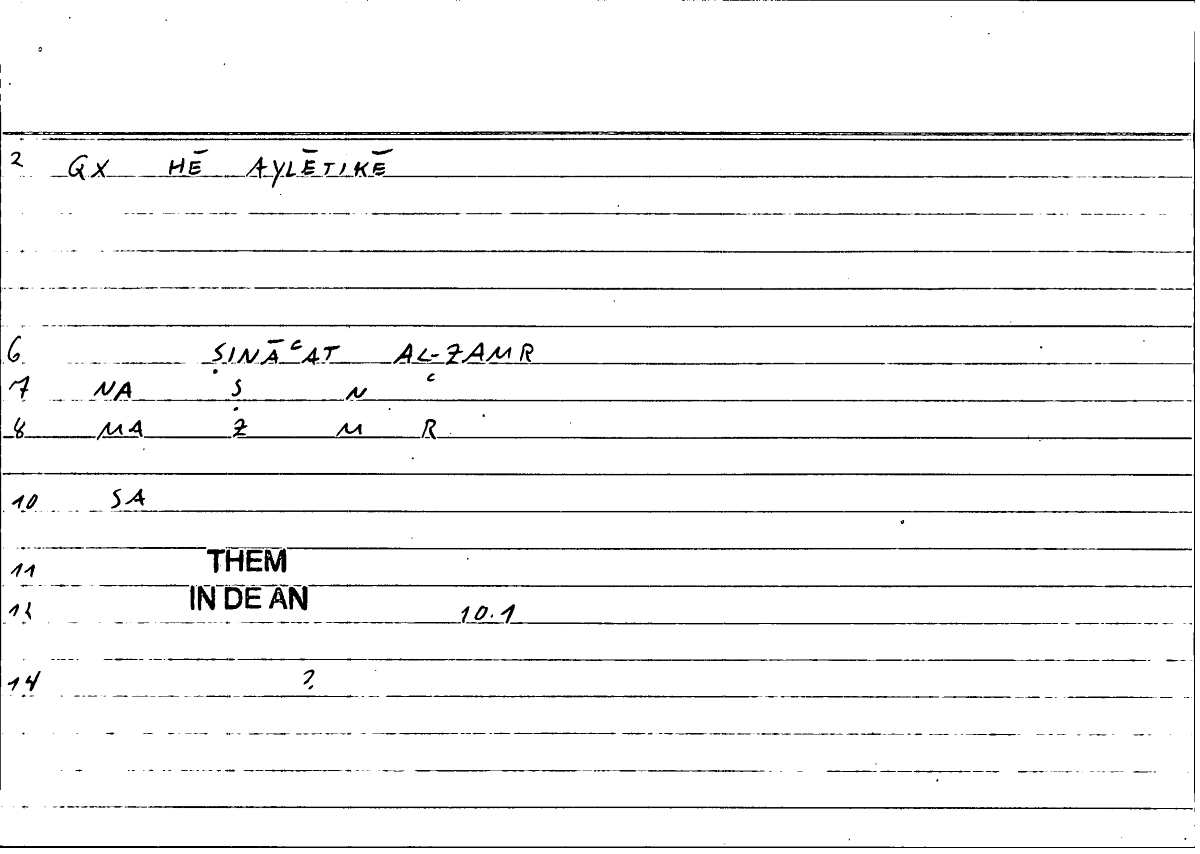 2 GX HĒ AYLĒTIKĒ
6 ṢINĀʿAT AL-ZAMR
7 NA Ṣ N ʿ
8 MA Ż M R
10 SA
11 THEM
12 IN DE AN 10.1
14 ?